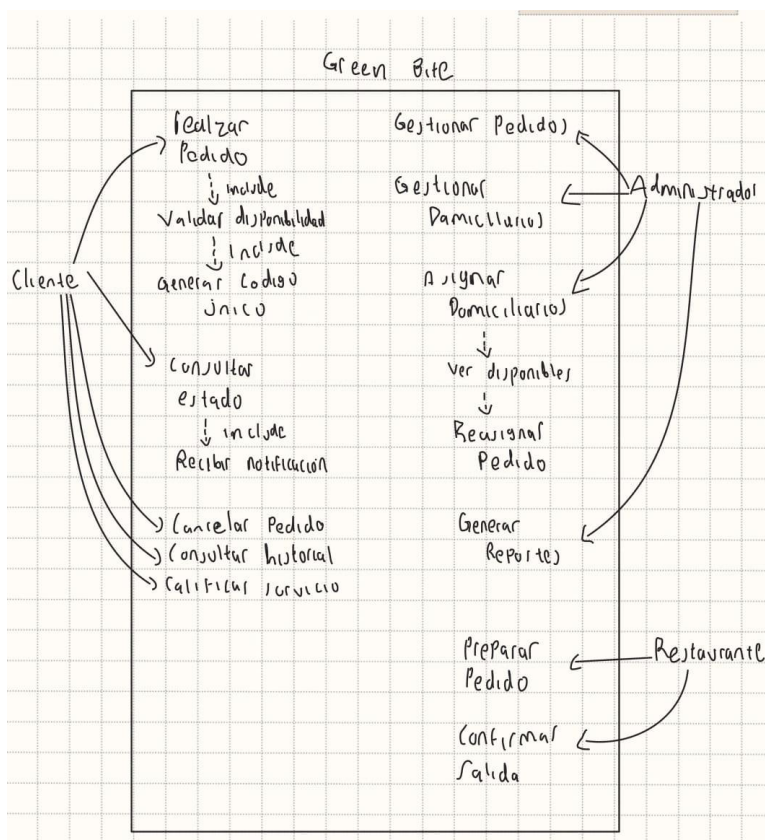 Green Bite
realzar
Pedido
include
Validar disponibilidad
Include
Generar Codigo
único
Consultar
estado
include
Recibir notificación
Cancelar Pedido
Consultar historial
Calificar servicio
Cliente
Gestionar Pedidos
Gestionar
Domiciliarios
Asignar
Domiciliarios
ver disponibles
Reasignar
Pedido
Generar
Reportes
Administrador
Preparar
Pedido
Confirmar
Salida
Restaurante